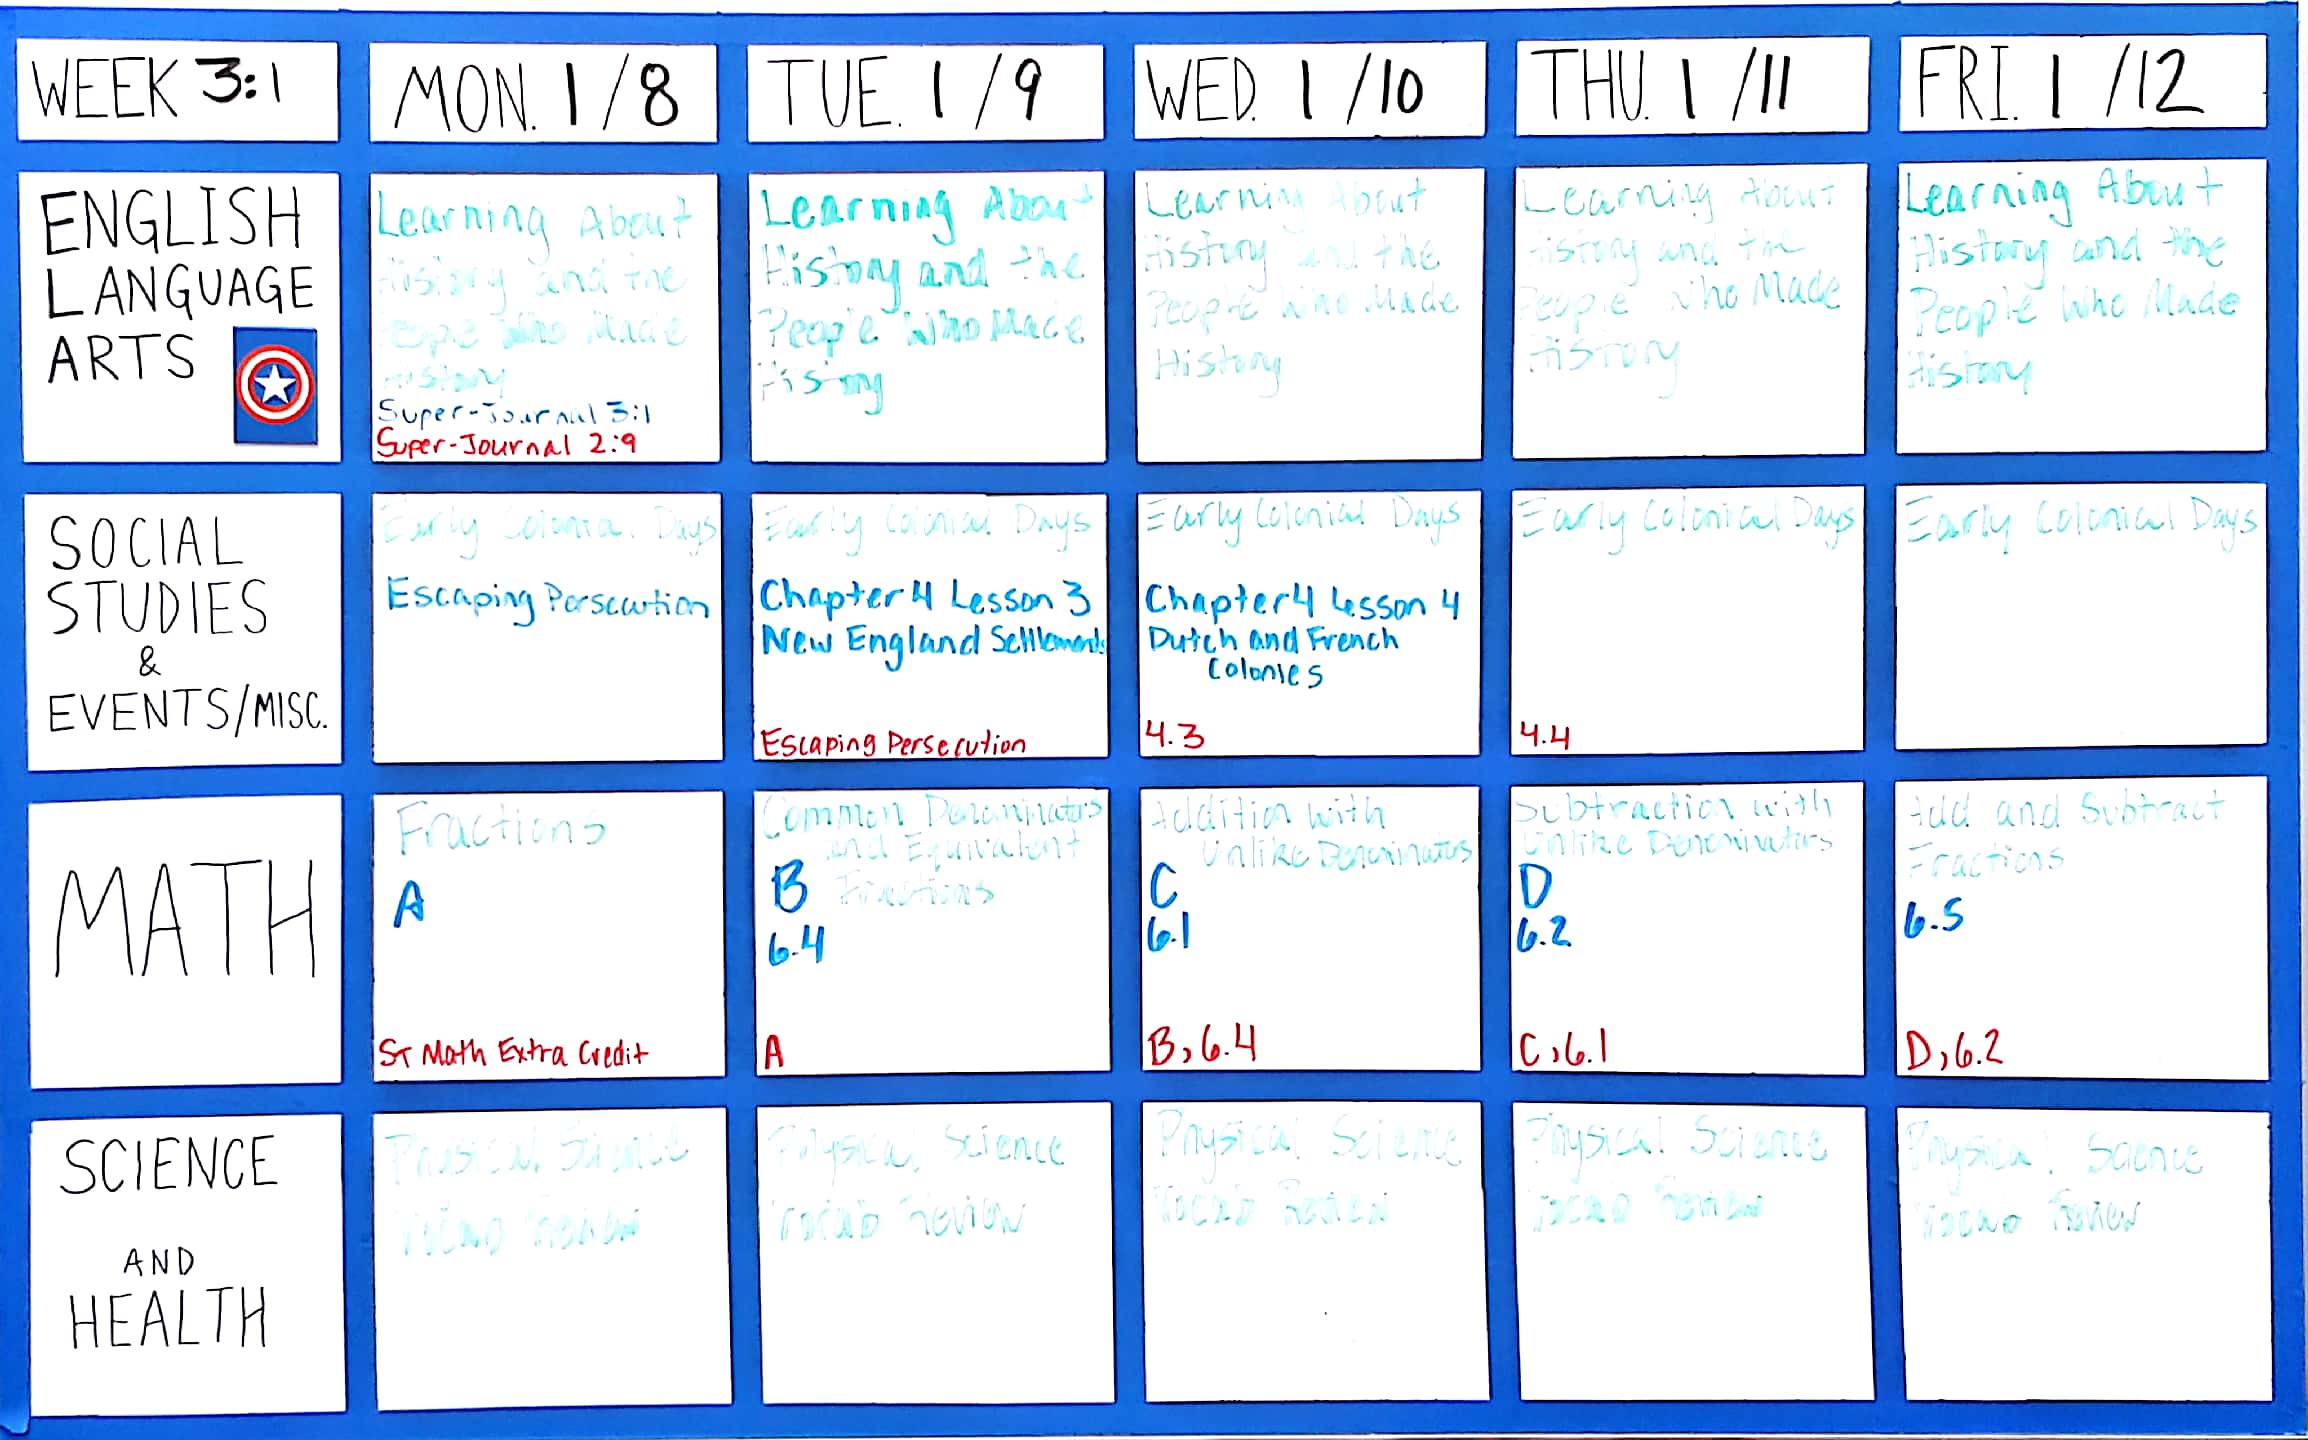 WEEK 3:1
MON. 1/8
TUE. 1/9
WED. 1/10
THU. 1/11
FRI. 1/12
ENGLISH
LANGUAGE
ARTS
Learning About
History and the
People Who Made
History
Super-Journal 3:1
Super-Journal 2:9
Learning About
History and the
People Who Made
History
Learning About
History and the
People Who Made
History
Learning About
History and the
People Who Made
History
Learning About
History and the
People Who Made
History
SOCIAL
STUDIES
&
EVENTS/MISC.
Early Colonial Days
Escaping Persecution
Early Colonial Days
Chapter 4 Lesson 3
New England Settlements
Escaping Persecution
Early Colonial Days
Chapter 4 Lesson 4
Dutch and French
Colonies
4.3
Early Colonial Days
4.4
Early Colonial Days
MATH
Fractions
A
ST Math Extra Credit
Common Denominators
and Equivalent
Fractions
B
6.4
A
Addition with
Unlike Denominators
C
6.1
B, 6.4
Subtraction with
Unlike Denominators
D
6.2
C, 6.1
Add and Subtract
Fractions
6.5
D, 6.2
SCIENCE
AND
HEALTH
Physical Science
Vocab Review
Physical Science
Vocab Review
Physical Science
Vocab Review
Physical Science
Vocab Review
Physical Science
Vocab Review